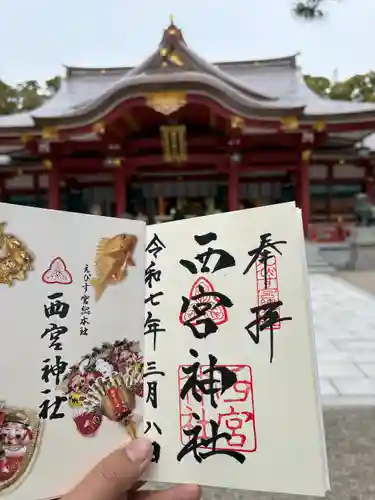 奉拝
西宮神社
西宮
神社
令和七年三月八日
えびす宮総本社
西宮神社